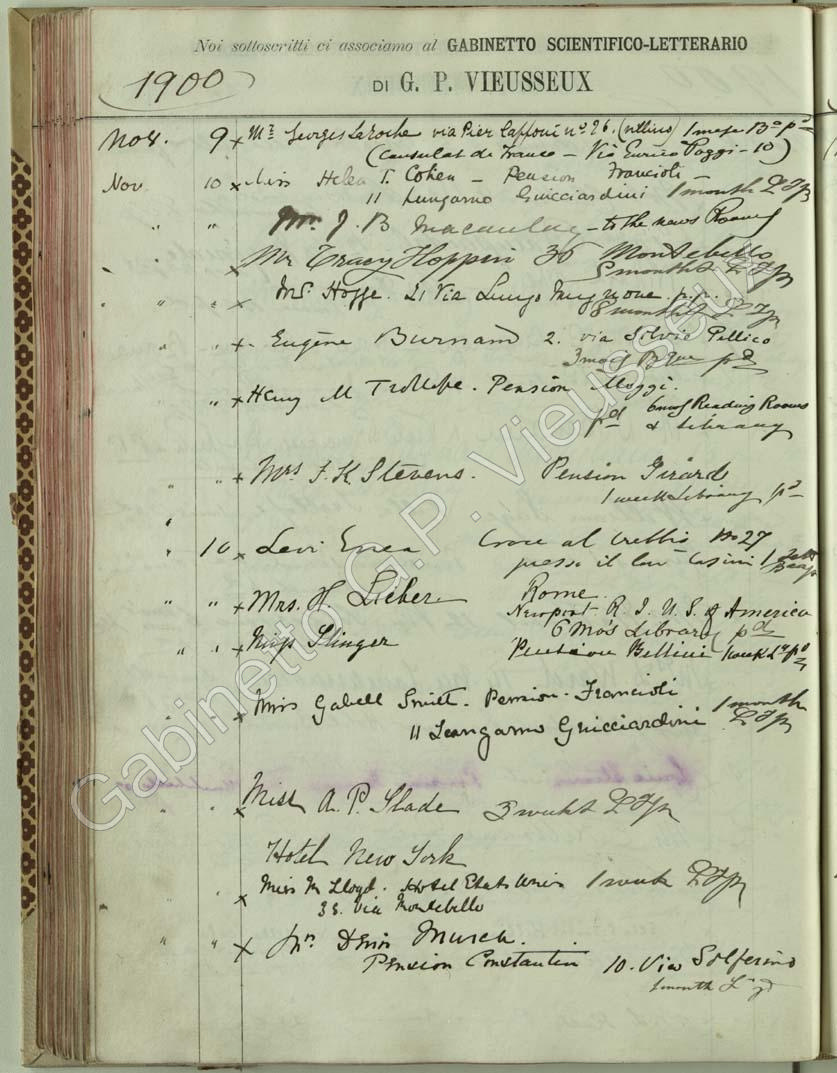 Noi sottoscritti ci associamo al GABINETTO SCIENTIFICO-LETTERARIO
1900
DI G. P. VIEUSSEUX
Nov. 9 x Mr Georges Laroche via Pier Capponi no. 96. (villino) 1 B
(Consulat de France – Via Enrico Poggi – 10)
Nov 10 x Miss Helen T. Cohen – Pension Francioli –
11 Lungarno Guicciardini 1 month
" " Mr. J. B Macaulay – to the news Rooms
x Mr Tracy Hoppin 36 Montebello
months
" " x Hoffe. 21 Via Lungo Mugnone. p.p.
8 months
" x Eugène Burnand 2. via Silvio Pellico
3 pd
" x Henry M Trollope. Pension Moggi.
pd 6 mos Reading Rooms
& Library
" " x Mrs J. K Stevens. Pension Girard
1 week Library pd
" 10 x Levi Enea Croce al Trebbio No 27
presso il 1
" " x Mrs. H Lieber Rome.
Newport R. I. U. S. of America
6 Mo's Library pd
" " x Miss Slinger Pension Bellini 1 week pd
" x Miss Gabell Smith. Pension Francioli 1 month
11 Lungarno Guicciardini
" " x Miss A. P. Slade 3 weeks
Hotel New York
" " x Miss M Lloyd. Hotel Etats Unis 1 week
35. Via Montebello
" " x Musch.
Pension Constantin 10. Via Solferino
1 month
Gabinetto G.P. Vieusseux